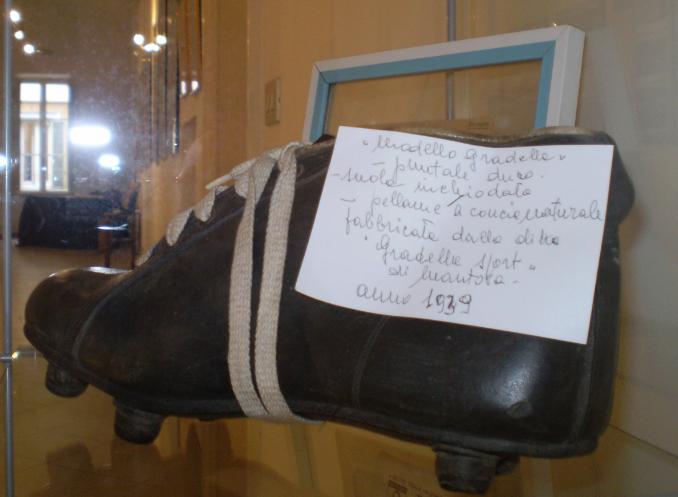 "Modello gradella"
- puntale duro.
- suola inchiodata
- pellame a concia naturale
fabbricata dalla ditta
"Gradella Sport"
di Mantova -
anno 1939